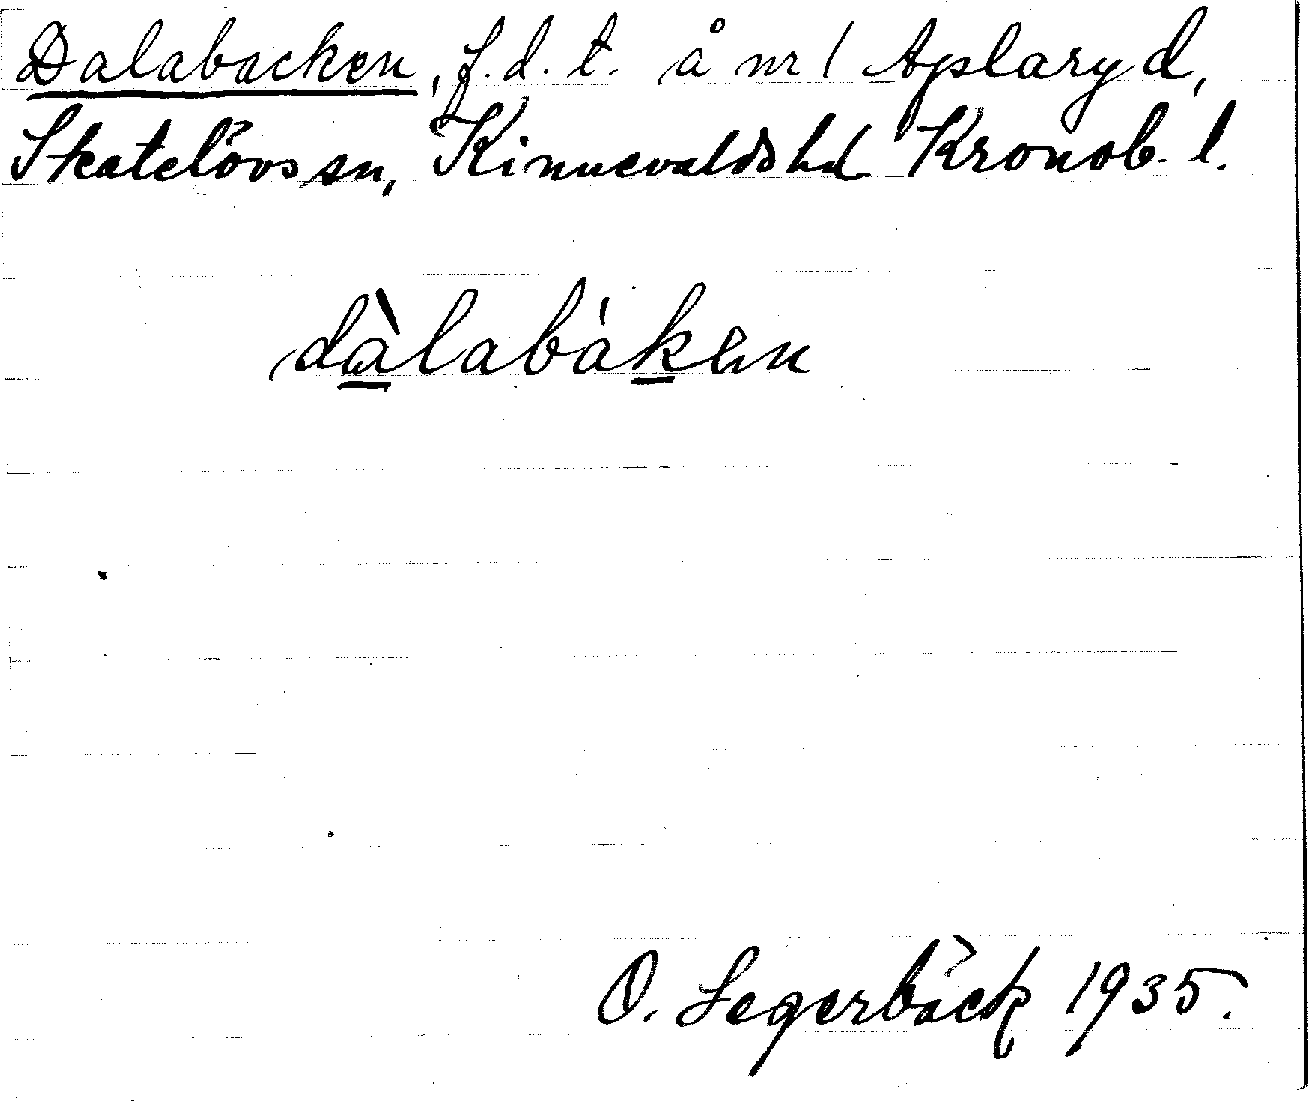 Dalabacken, f.d.t. å nr 1 Aplaryd,
Skatelövs sn, Kinnevalds hd Kronob. l.
dàlabáken
O. Segerbäck 1935.